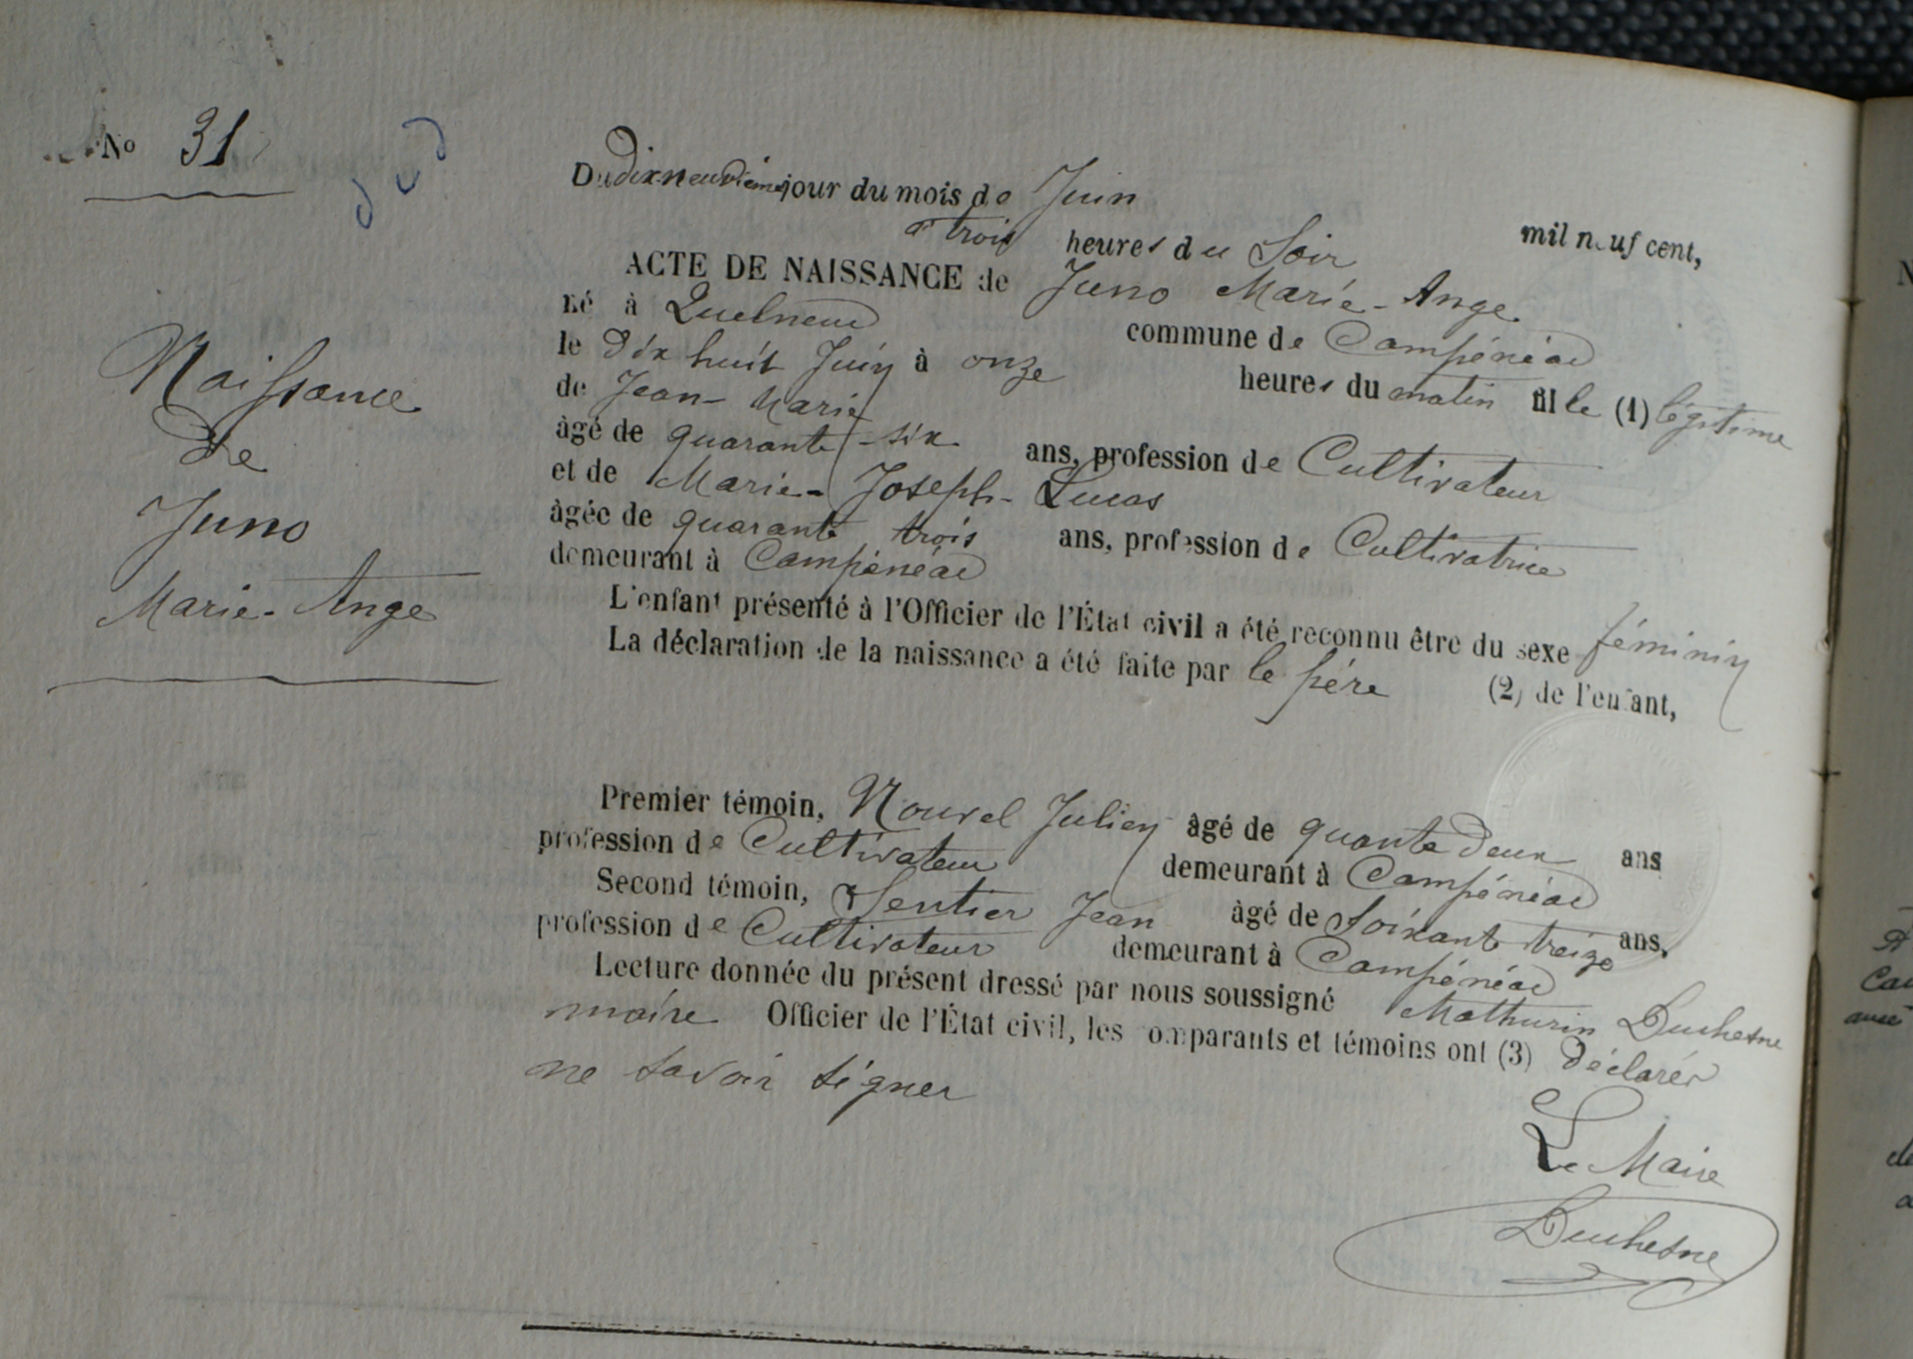 No 31
Du dix neuvième jour du mois de Juin mil neuf cent,
à trois heures du Soir
ACTE DE NAISSANCE de Juno Marie-Ange
né à Quelneuc commune de Campénéac
le dix huit Juin à onze heures du matin fille (1) légitime
de Jean-Marie
âgé de quarante-six ans, profession de Cultivateur
et de Marie-Joseph-Lucas
âgée de quarante trois ans, profession de Cultivatrice
demeurant à Campénéac
L'enfant présenté à l'Officier de l'État civil a été reconnu être du sexe féminin
La déclaration de la naissance a été faite par le père (2) de l'enfant,
Naissance
de
Juno
Marie-Ange
Premier témoin, Nourel Julien âgé de quante deux ans
profession de Cultivateur demeurant à Campénéac
Second témoin, Sentier Jean âgé de Soixante treize ans,
profession de Cultivateur demeurant à Campénéac
Lecture donnée du présent dressé par nous soussigné Mathurin Duchesne
maire Officier de l'État civil, les comparants et témoins ont (3) déclarér
ne savoir signer
Le Maire
Duchesne